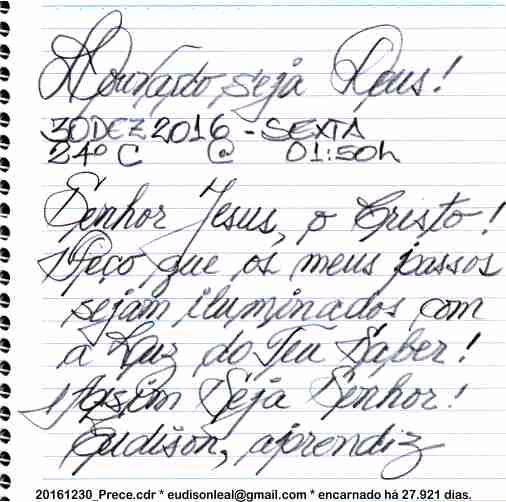 Louvado seja Deus!
30 DEZ 2016 - SEXTA
24º C @ 01:50h
Senhor Jesus, o Cristo!
Peço que os meus passos
sejam iluminados com
a Luz do Teu Saber!
Assim Seja Senhor!
Eudison, aprendiz
20161230_Prece.cdr * eudisonleal@gmail.com * encarnado há 27.921 dias.